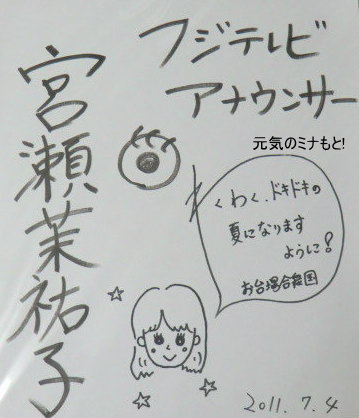 フジテレビ
アナウンサー
宮瀬茉祐子
元気のミナもと!
わくわく、ドキドキの
夏になります
ように!
お台場合衆国
2011.7.4